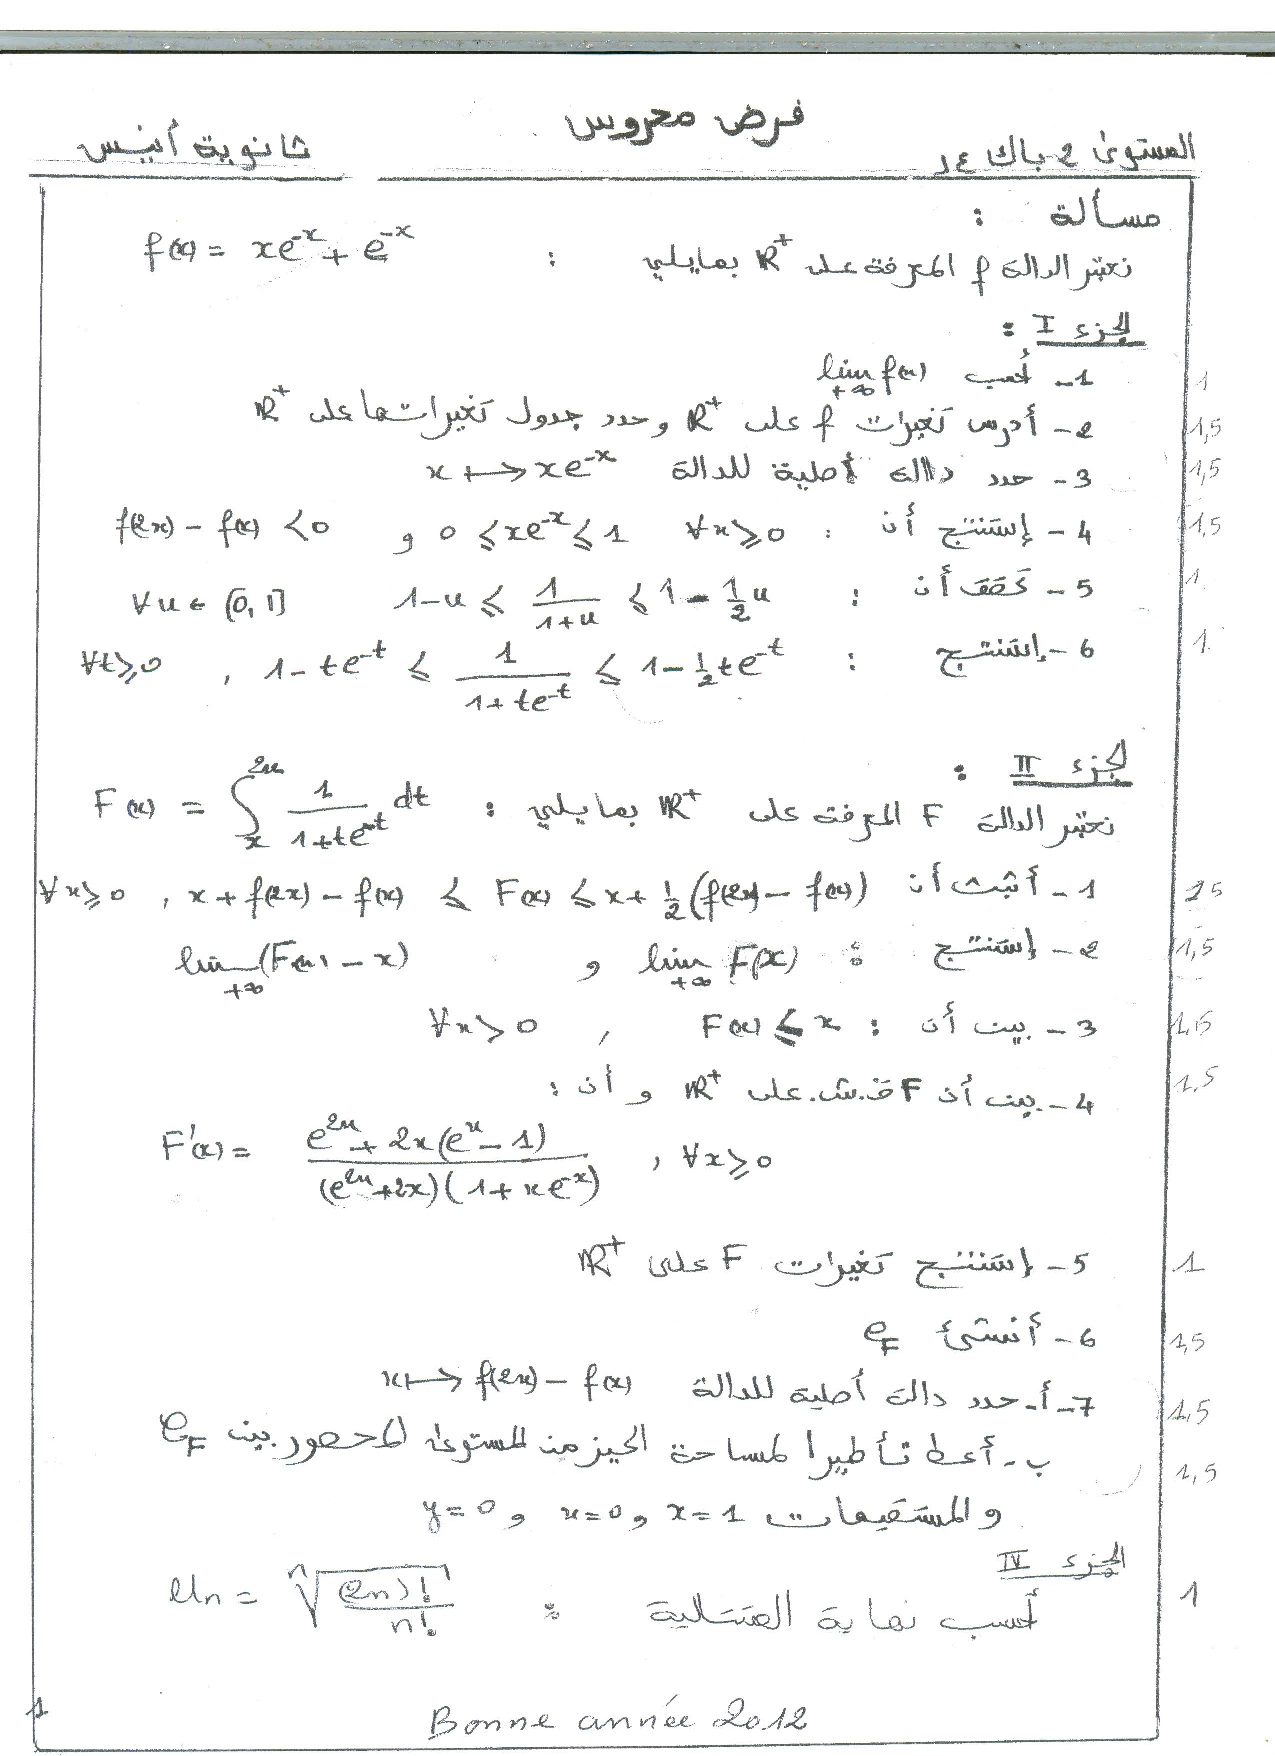 فرض محروس
المستوى 2 باك ع ر
ثانوية أنيس
مسألة :
نعتبر الدالة f المعرفة على ℝ⁺ بمايلي : f(x) = xe⁻ˣ + e⁻ˣ
الجزء I :
1- أحسب lim f(x) +∞ 1
2- أدرس تغيرات f على ℝ⁺ و حدد جدول تغيراتها على ℝ⁺ 1,5
3- حدد دالة أصلية للدالة x ↦ xe⁻ˣ 1,5
4- إستنتج أن : ∀x ≥ 0 0 ≤ xe⁻ˣ ≤ 1 و f(2x) - f(x) < 0 1,5
5- تحقق أن : 1-u ≤ 1/(1+u) ≤ 1 - 1/2 u ∀u ∈ [0,1] 1
6- إستنتج : 1 - te⁻ᵗ ≤ 1/(1+te⁻ᵗ) ≤ 1 - 1/2 te⁻ᵗ , ∀t ≥ 0 1
الجزء II :
نعتبر الدالة F المعرفة على ℝ⁺ بمايلي : F(x) = ∫ₓ²ˣ 1/(1+te⁻ᵗ) dt
1- أثبت أن ∀x ≥ 0 , x + f(2x) - f(x) ≤ F(x) ≤ x + 1/2 (f(2x) - f(x))
2- إستنتج : lim F(x) +∞ و lim (F(x) - x) +∞ 1,5
3- بين أن : F(x) ≤ x , ∀x > 0 1,5
4- بين أن F ق.ش.على ℝ⁺ و أن : 1.5
F'(x) = (e²ˣ + 2x(eˣ - 1))/((e²ˣ + 2x)(1 + xe⁻ˣ)) , ∀x ≥ 0
5- إستنتج تغيرات F على ℝ⁺ 1
6- أنشئ 𝒞F 1,5
7- أ- حدد دالة أصلية للدالة x ↦ f(2x) - f(x) 1,5
ب- أعط تأطيرا لمساحة الحيز من المستوى المحصور بين 𝒞F 1,5
والمستقيمات x = 1 و x = 0 و y = 0
الجزء IV
أحسب نهاية المتتالية : Uₙ = ⁿ√((2n)!/n!) 1
Bonne année 2012
1